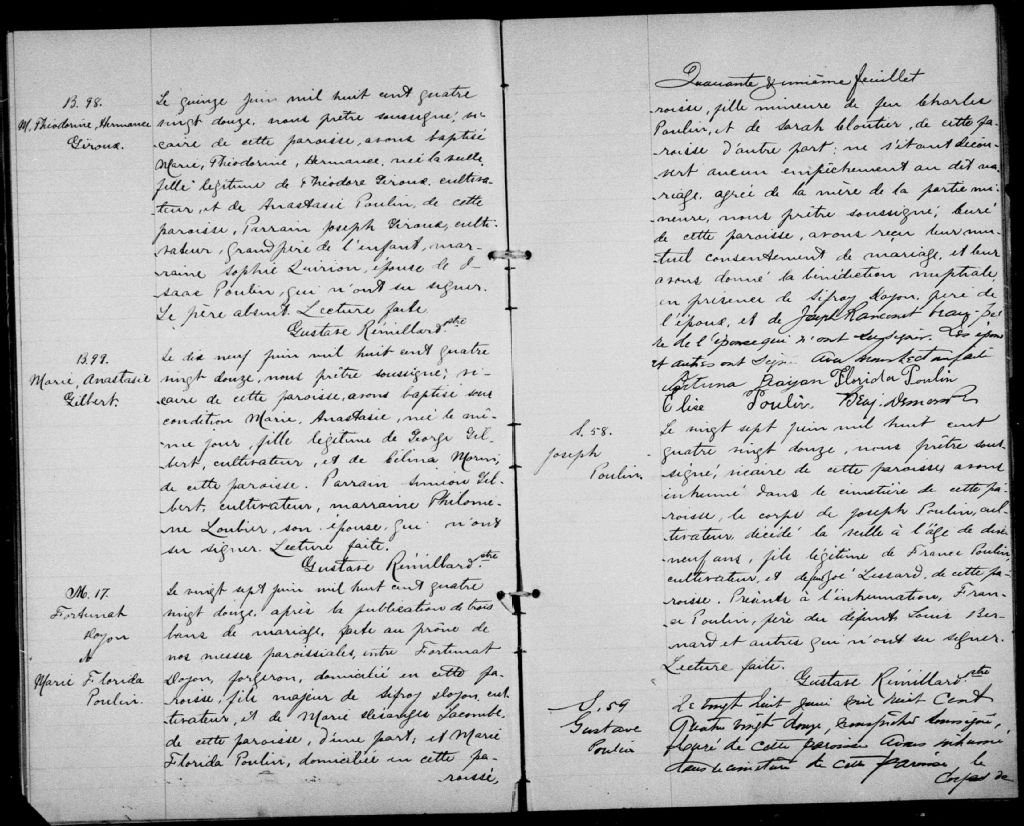 B. 98.
M. Théodorine, Hermance
Giroux.
Le quinze juin mil huit cent quatre
vingt douze, nous prêtre soussigné, vi-
-caire de cette paroisse, avons baptisé
Marie, Théodorine, Hermance, née la veille,
fille légitime de Théodore Giroux, cultiva-
-teur, et de Anastasie Poulin, de cette
paroisse, Parrain Joseph Giroux, culti-
-vateur, grand père de l'enfant, mar-
-raine Sophie Quirion, épouse de I-
-saac Poulin, qui n'ont su signer.
Le père absent. Lecture faite
Gustave Rémillard ptre
B.99.
Marie, Anastasie
Gilbert.
Le dix neuf juin mil huit cent quatre
vingt douze, nous prêtre soussigné, vi-
-caire de cette paroisse, avons baptisé sous
condition Marie, Anastasie, née le mê-
-me jour, fille légitime de George Gil-
-bert, cultivateur, et de Célina Morin,
de cette paroisse. Parrain Simeon Gil-
-bert, cultivateur, marraine Philome-
-ne Loubier, son épouse, qui n'ont
su signer. Lecture faite.
Gustave Rémillard ptre
M. 17.
Fortunat
Doyon
&
Marie Florida
Poulin.
Le vingt sept juin mil huit cent quatre
vingt douze, après la publication de trois
bans de mariage, faite au prône de
nos messes paroissiales, entre Fortunat
Doyon, forgeron, domicilié en cette pa-
-roisse, fils majeur de Sifroy Doyon, cul-
-tivateur, et de Marie Desanges Lacombe,
de cette paroisse, d'une part, et Marie
Florida Poulin, domiciliée en cette pa-
-roisse,
Quarante & unième feuillet
-roisse, fille mineure de feu Charles
Poulin, et de Sarah Cloutier, de cette pa-
-roisse d'autre part; ne s'étant décou-
-vert aucun empêchement au dit ma-
-riage, agréé de la mère de la partie mi-
-neure, nous prêtre soussigné, curé
de cette paroisse, avons reçu leur mu-
-tuel consentement de mariage, et leur
avons donné la bénédiction nuptiale
en présence de Sifroy Doyon, père de
l'époux, et de Joseph Rancourt beau-pè-
re de l'épouse qui n'ont su signer. Les époux
et autres ont signé avec nous lecture faite
Fortuna Doiyon Florida Poulin
Elise Poulin. Benj. Demers Ptre
S. 58.
Joseph
Poulin.
Le vingt sept juin mil huit cent
quatre vingt douze, nous prêtre sous-
-signé, vicaire de cette paroisse avons
inhumé dans le cimetière de cette pa-
-roisse, le corps de Joseph Poulin, cul-
-tivateur, décédé la veille à l'âge de dix
neuf ans, fils légitime de France Poulin,
cultivateur, et de feu Zoé Lessard, de cette pa-
-roisse. Présents à l'inhumation, Fran-
-ce Poulin, père du défunt, Louis Ber-
-nard et autres qui n'ont su signer.
Lecture faite.
Gustave Rémillard ptre
S. 59
Gustave
Poulin
Le vingt huit juin mil huit cent
quatre vingt douze, nous prêtre soussigné,
curé de cette paroisse avons inhumé
dans le cimetière de cette paroisse le
Corps de